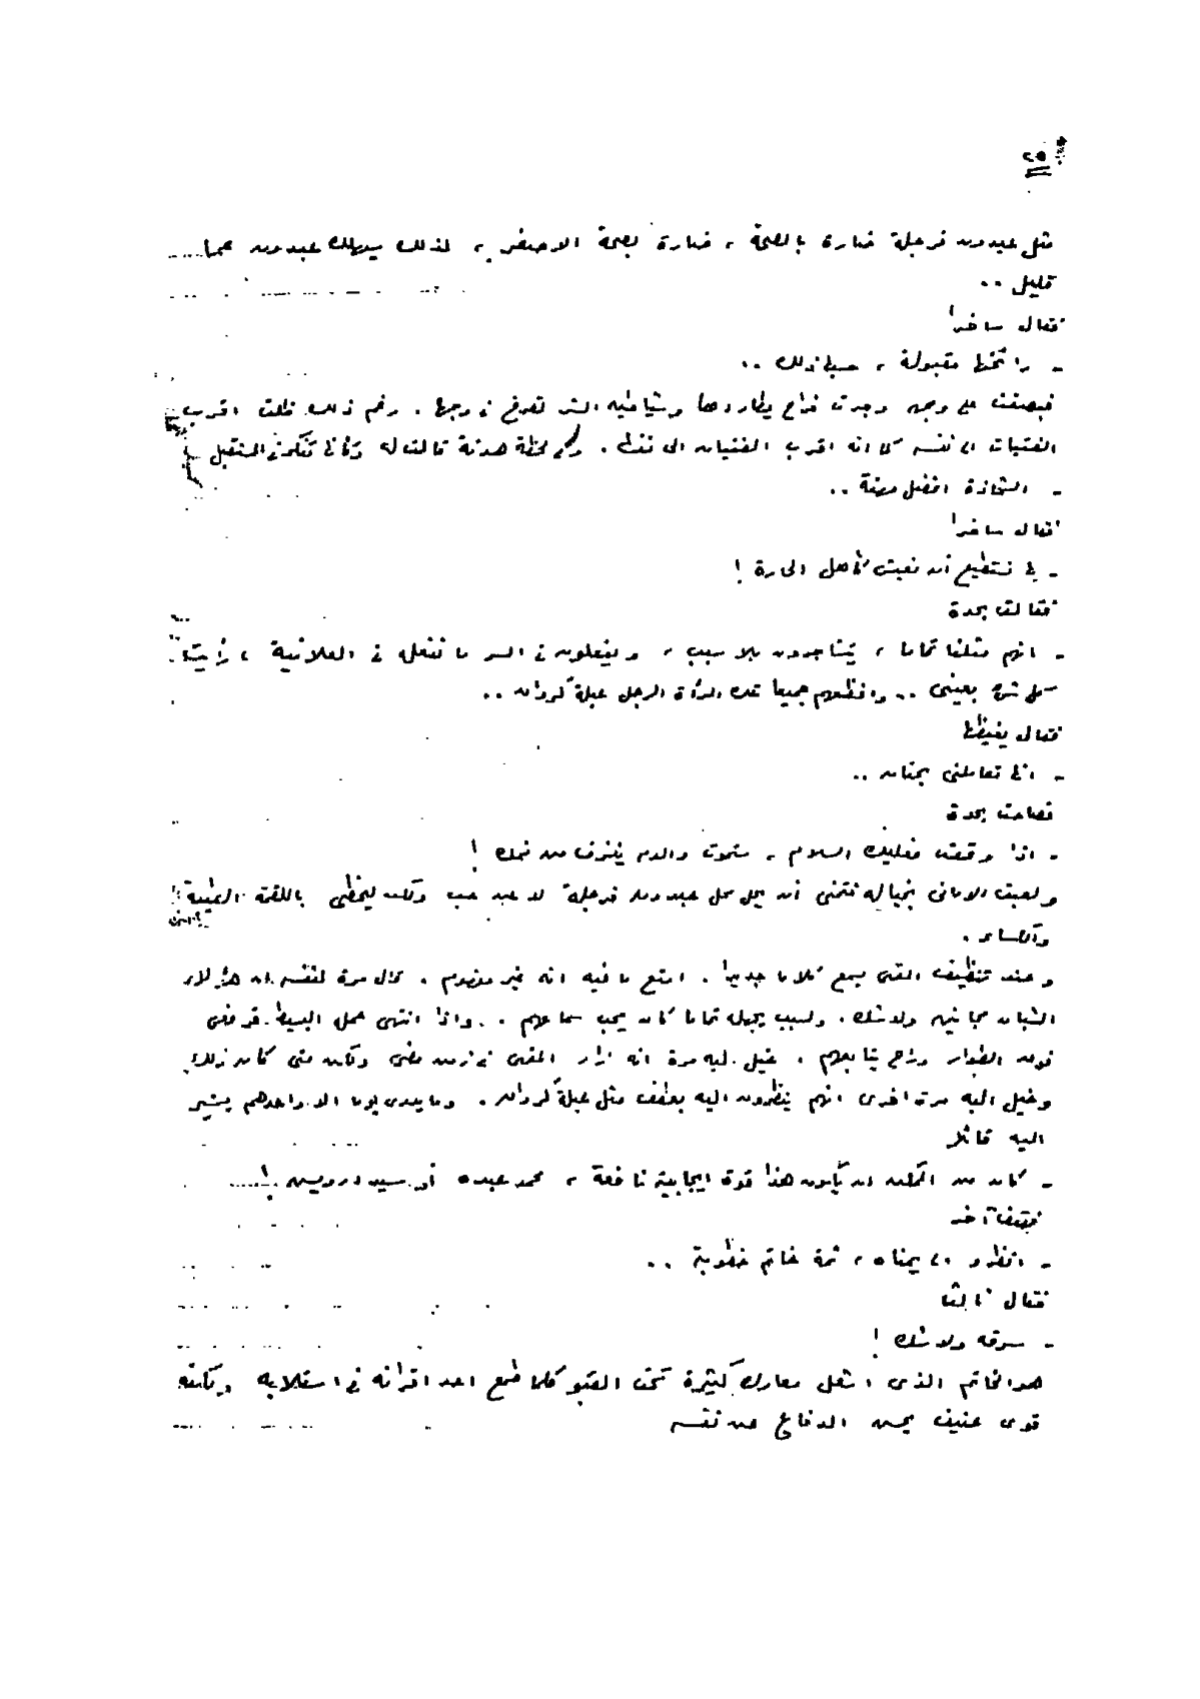 ٢٥
مثل عبدون فرجلة ضارة بالصحة ، ضارة بصحة الاصغر ، لذلك سيهلك عبدون عما
قليل ..
فقال ساخرا
- رائحتك مقبولة ، حسبك ذلك ..
فبصقت على وجهه وجرت فراح يطاردها وشياطين الشر تعربد في وجهها . ورغم ذلك ظلت اقرب
الفتيات الى نفسه كما انه اقرب الفتيان الى نفسها . وفي لحظة هدنة قالت له وكانا يتكلمان في المستقبل
- الشحاذة افضل مهنة ..
فقال ساخرا
- لا نستطيع أن نعيش كأهل الحارة !
فقالت بحدة
- انهم مثلنا تماما ، يتشاجرون بلا سبب ، ويفعلون في السر ما نفعله في العلانية ، رأيت
كل شئ بعيني .. وافظعهم جميعا تلك المرأة الرجل عبلة كروان ..
فقال بغيظ
- انك تعاملني بجفاء ..
فصاحت بحدة
- اذا وقعت فعليك السلام ، ستموت والدم ينزف من فمك !
ولعبت الاماني بخياله فتمنى أن يحل محل عبدون فرجلة لا عن حب ولكن ليحظى باللقمة الطيبة
والكساء .
وعند تنظيف المقهى يسمع كلاما جديدا . امتع ما فيه انه غير مفهوم . قال مرة لنفسه ان هؤلاء
الشبان مجانين ولا شك . ولسبب يجهله تماما كان يحب سماعهم . واذا انتهى عمل البسيط قرفص
فوق الطوار وراح يتابعهم . خيل اليه مرة انه زار المقهى في زمن مضى ولكن متى كان ذلك
وخيل اليه مرة اخرى انهم ينظرون اليه بعطف مثل عبلة كروان . وما يدري يوما الا واحدهم يشير
اليه قائلا
- كان من الممكن ان يكون هذا قوة ايجابية نافعة ، محمد عبده أو سيد درويش !
فهتف آخر
- انظروا الى يمناه ، ثمة خاتم خطوبة ..
فقال ثالث
- سرقه ولا شك !
هو الخاتم الذي اشعل معارك كثيرة تحت القبو كلما طمع احد اقرانه في استلابه ولكنه
قوى عنيف يحسن الدفاع عن نفسه